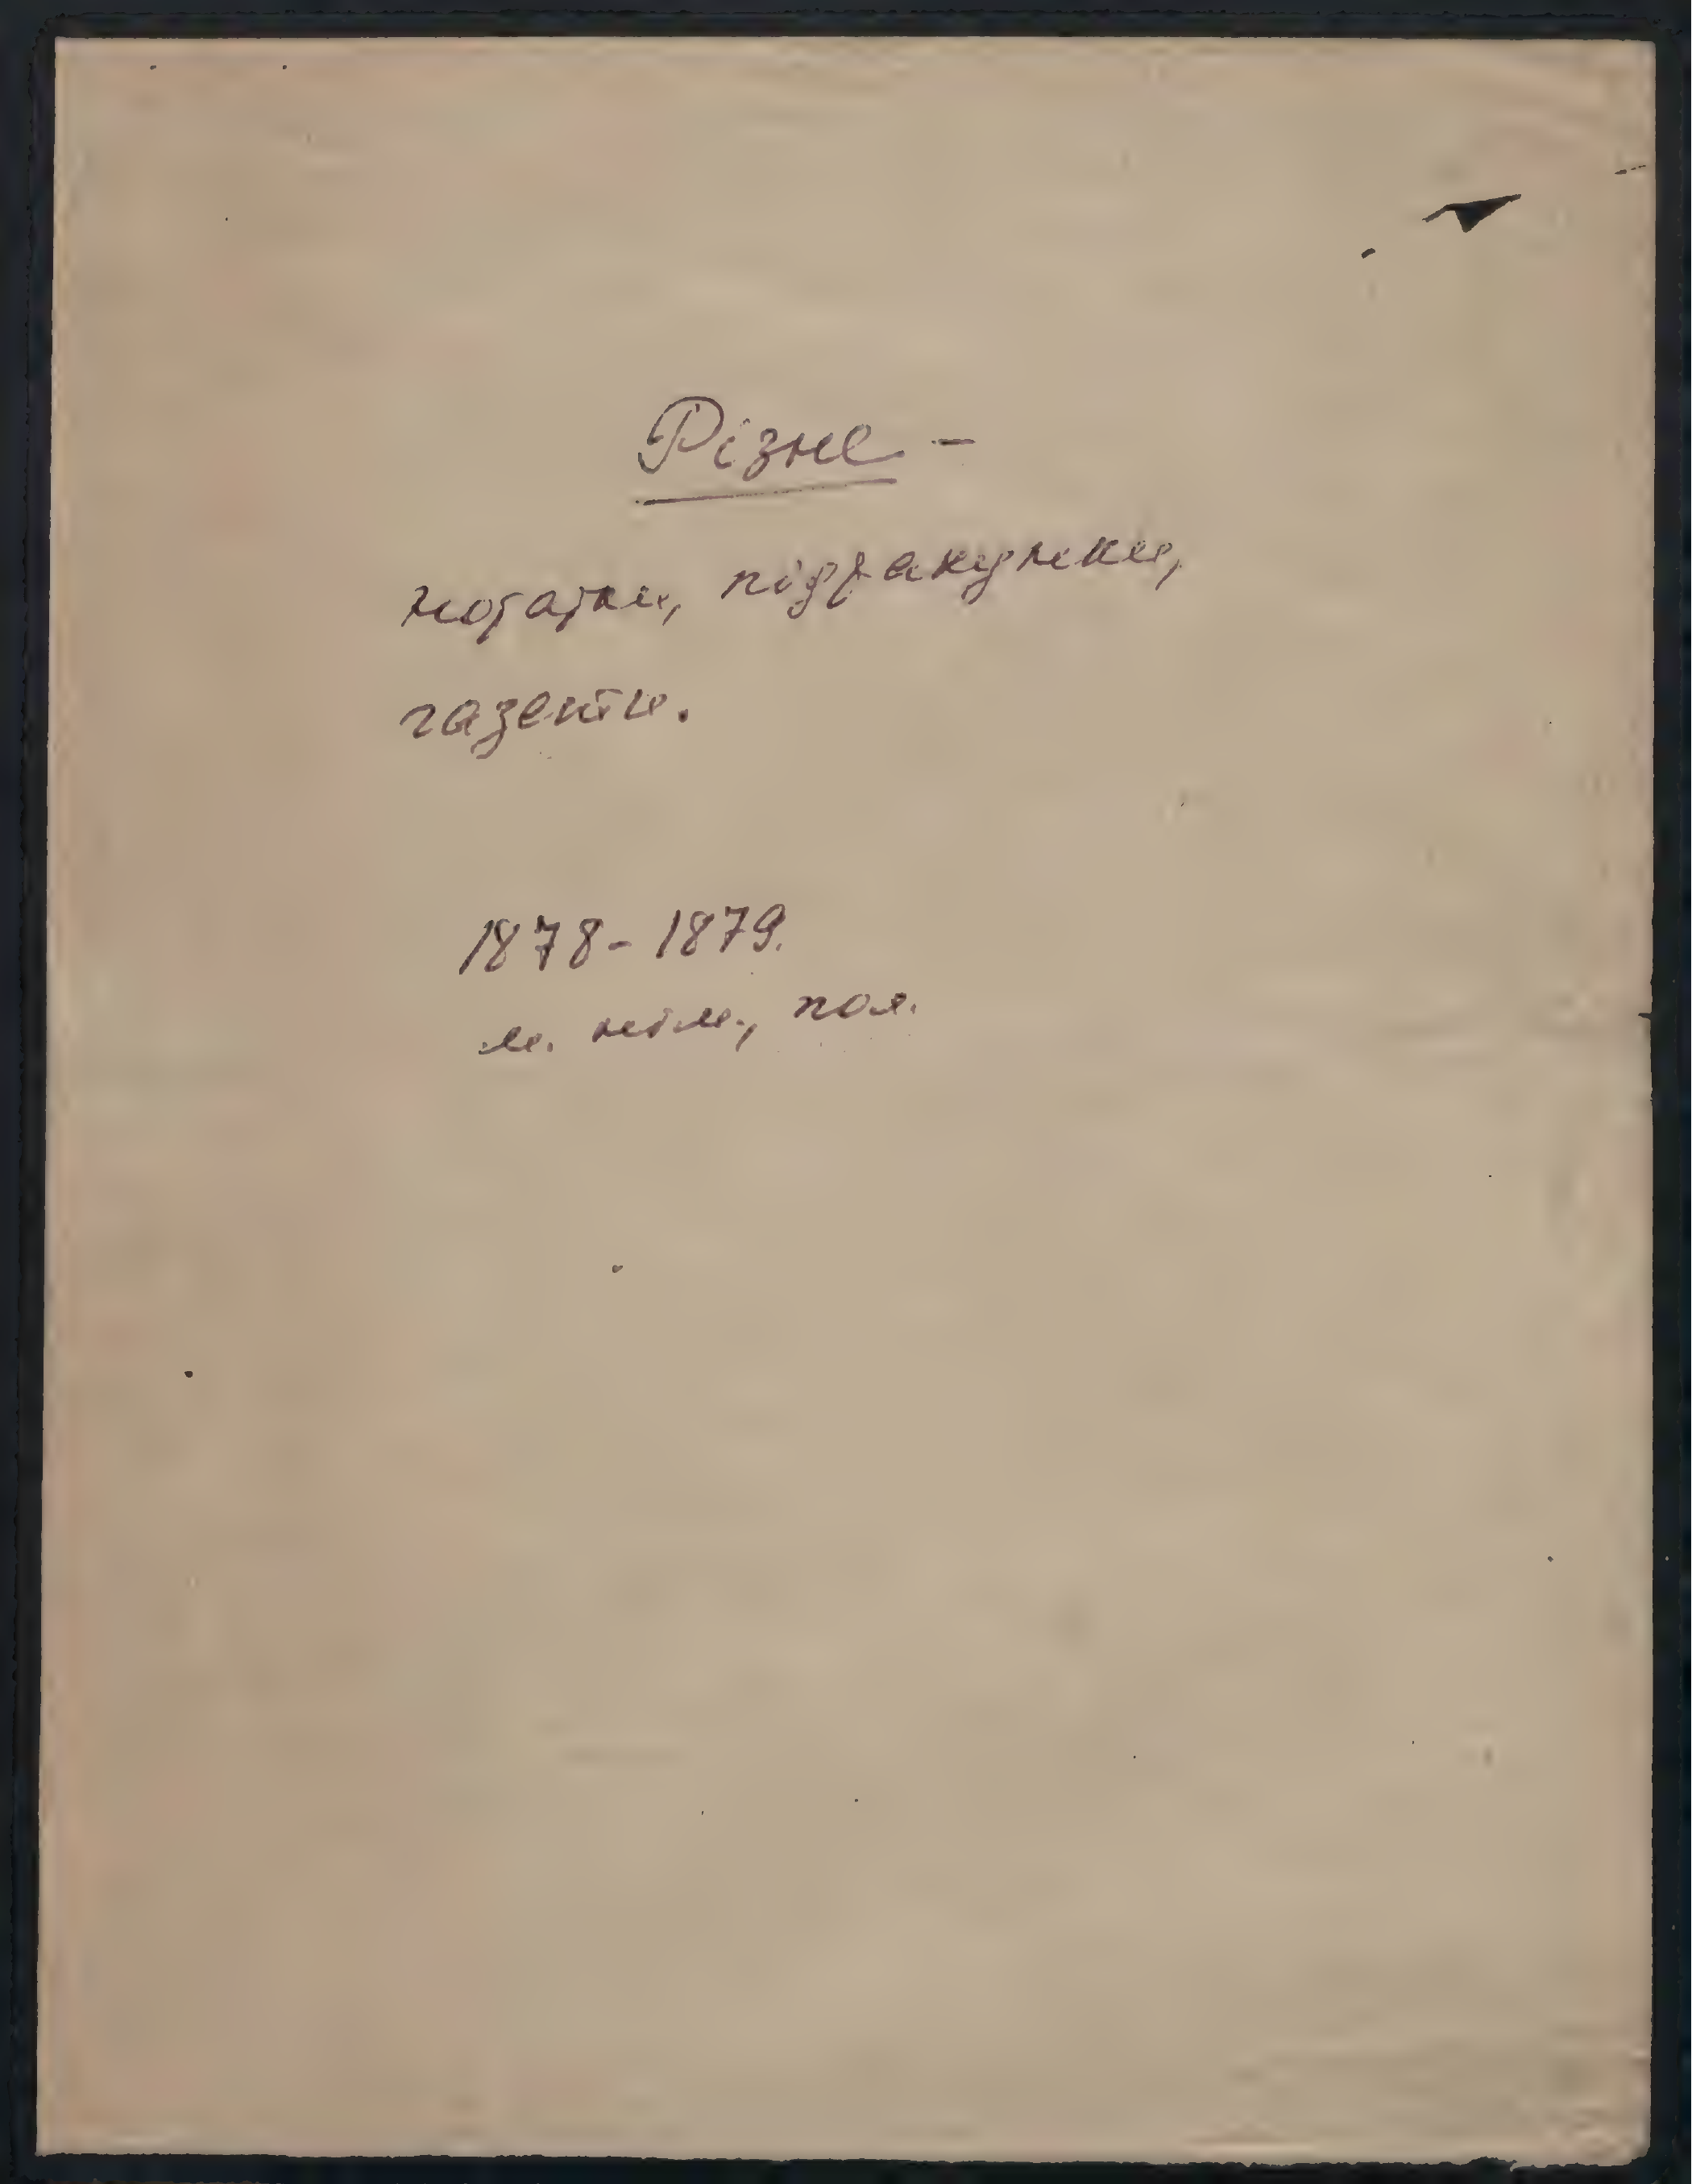 Різне —
нотатки, підрахунки,
газети.
1878 - 1879.
м. нім., пол.